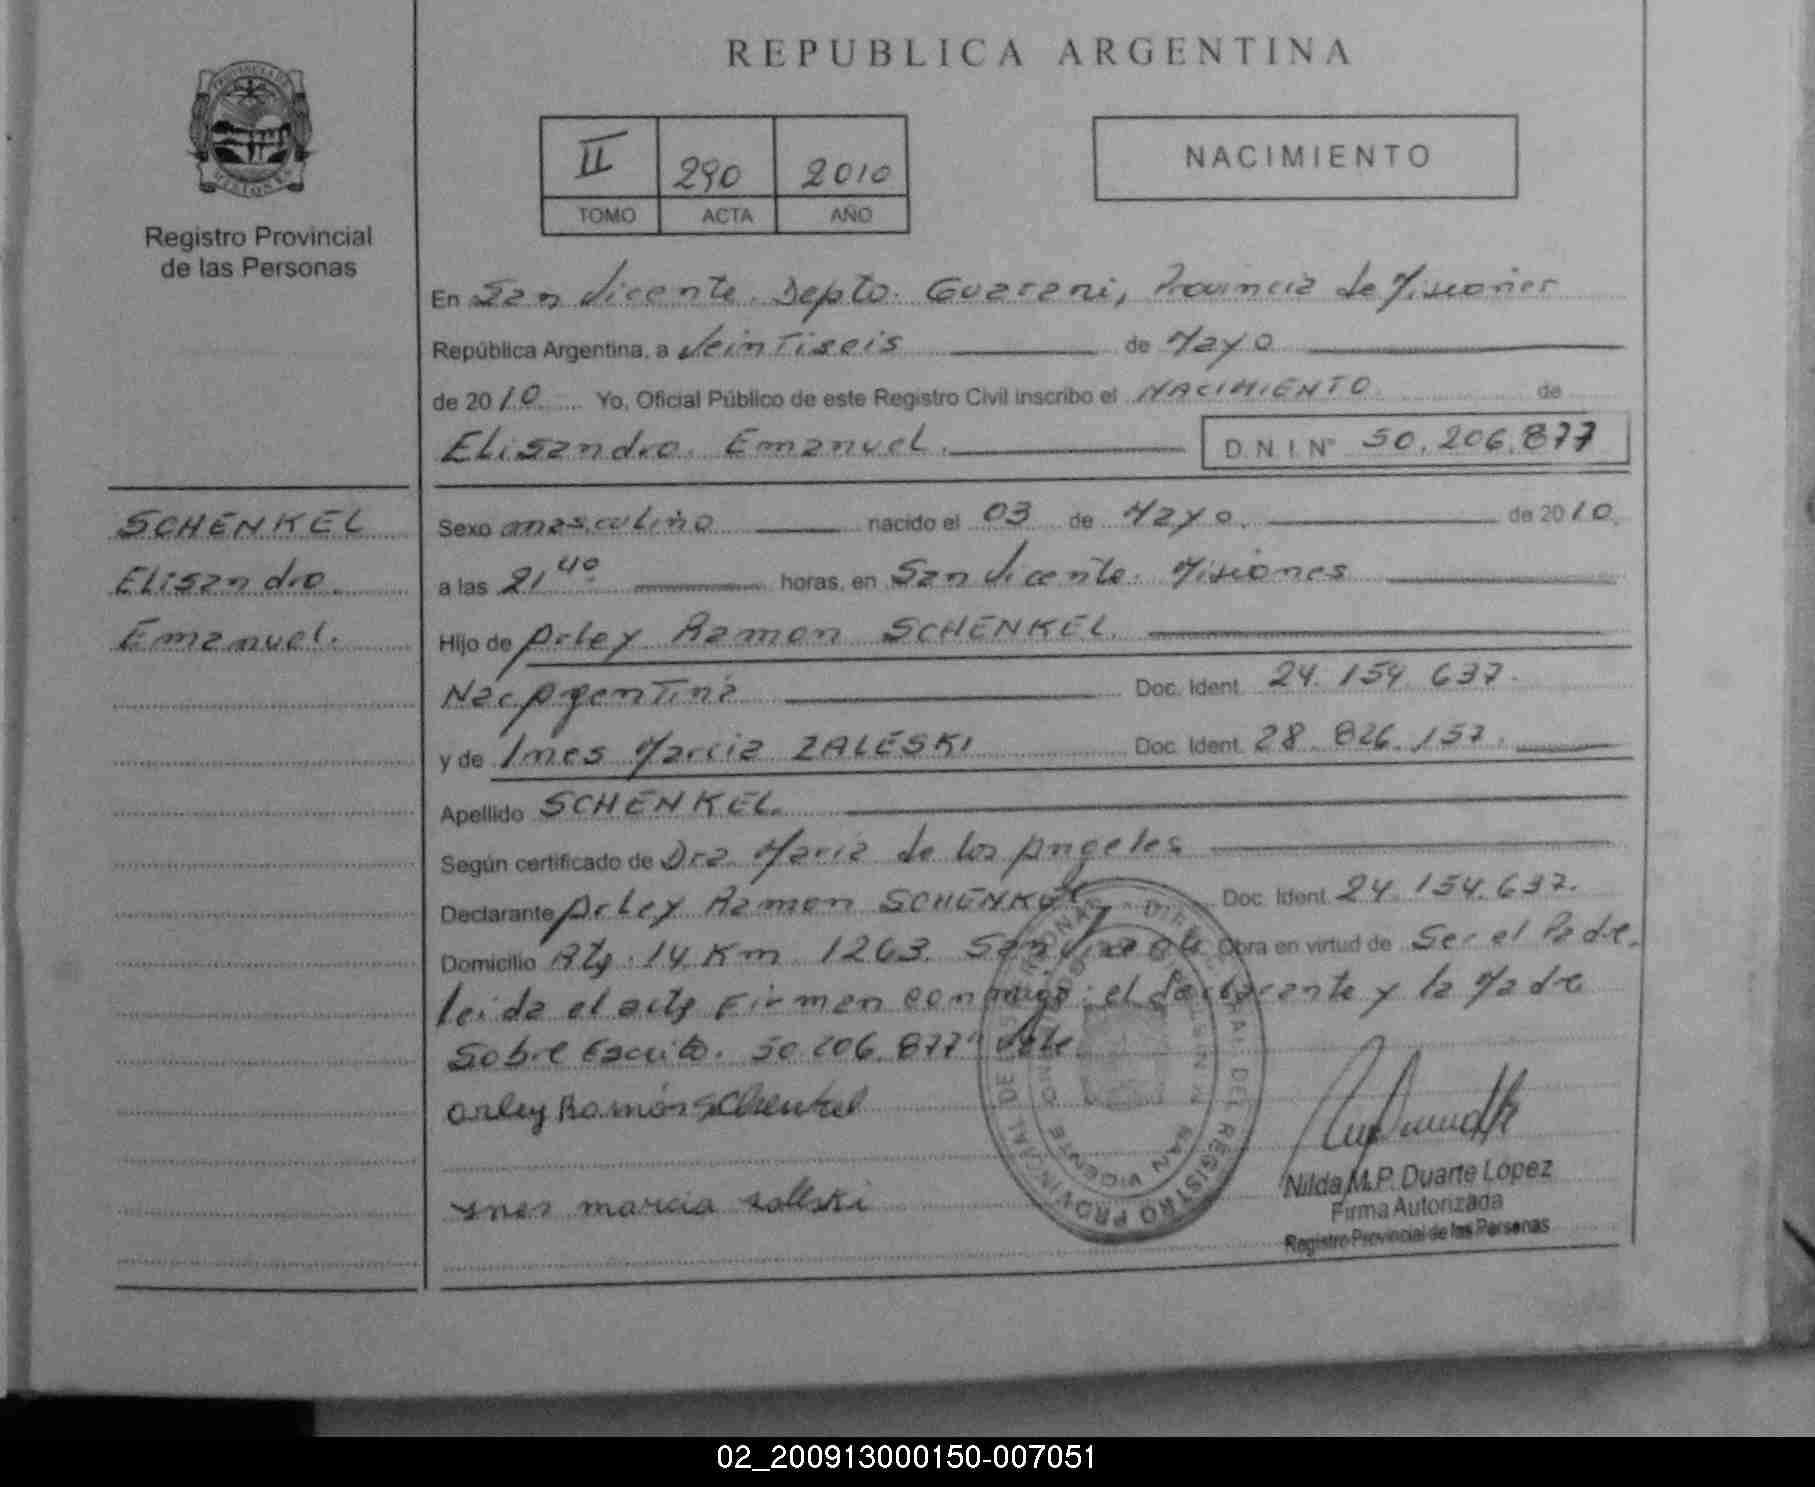 REPUBLICA ARGENTINA
PROVINCIA DE
MISIONES
Registro Provincial
de las Personas
II 290 2010
TOMO ACTA AÑO
NACIMIENTO
En San Vicente. Depto. Guarani, Provincia de Misiones
República Argentina, a Veintiseis de Mayo
de 2010 Yo, Oficial Público de este Registro Civil inscribo el NACIMIENTO de
Elisandro Emanuel. D.N.I. Nº 50.206.877
SCHENKEL
Elisandro
Emanuel.
Sexo masculino nacido el 03 de Mayo. de 2010.
a las 21 40 horas, en San Vicente. Misiones
Hijo de Arley Ramon SCHENKEL.
Nac Argentina Doc. Ident. 24.154.637.
y de Ines Marcia ZALESKI Doc. Ident. 28.826.157.
Apellido SCHENKEL.
Según certificado de Dra Maria de los Angeles
Declarante Arley Ramon SCHENKEL Doc. Ident. 24.154.637.
Domicilio Rta. 14 Km 1263. San Vicente Obra en virtud de Ser el Padre.
leida el acta Firman conmigo: el declarante y la Madre
Sobre Escrito. 50.206.877" Vale.
Arley Ramón Schenkel
Ines marcia zaleski
REGISTRO PROVINCIAL DE LAS PERSONAS
SAN VICENTE
Nilda M.P. Duarte Lopez
Firma Autorizada
Registro Provincial de las Personas
02_200913000150-007051